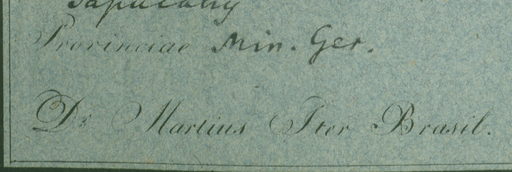 Sapucahy
Provinciae Min. Ger.
Dr Martius Iter Brasil.